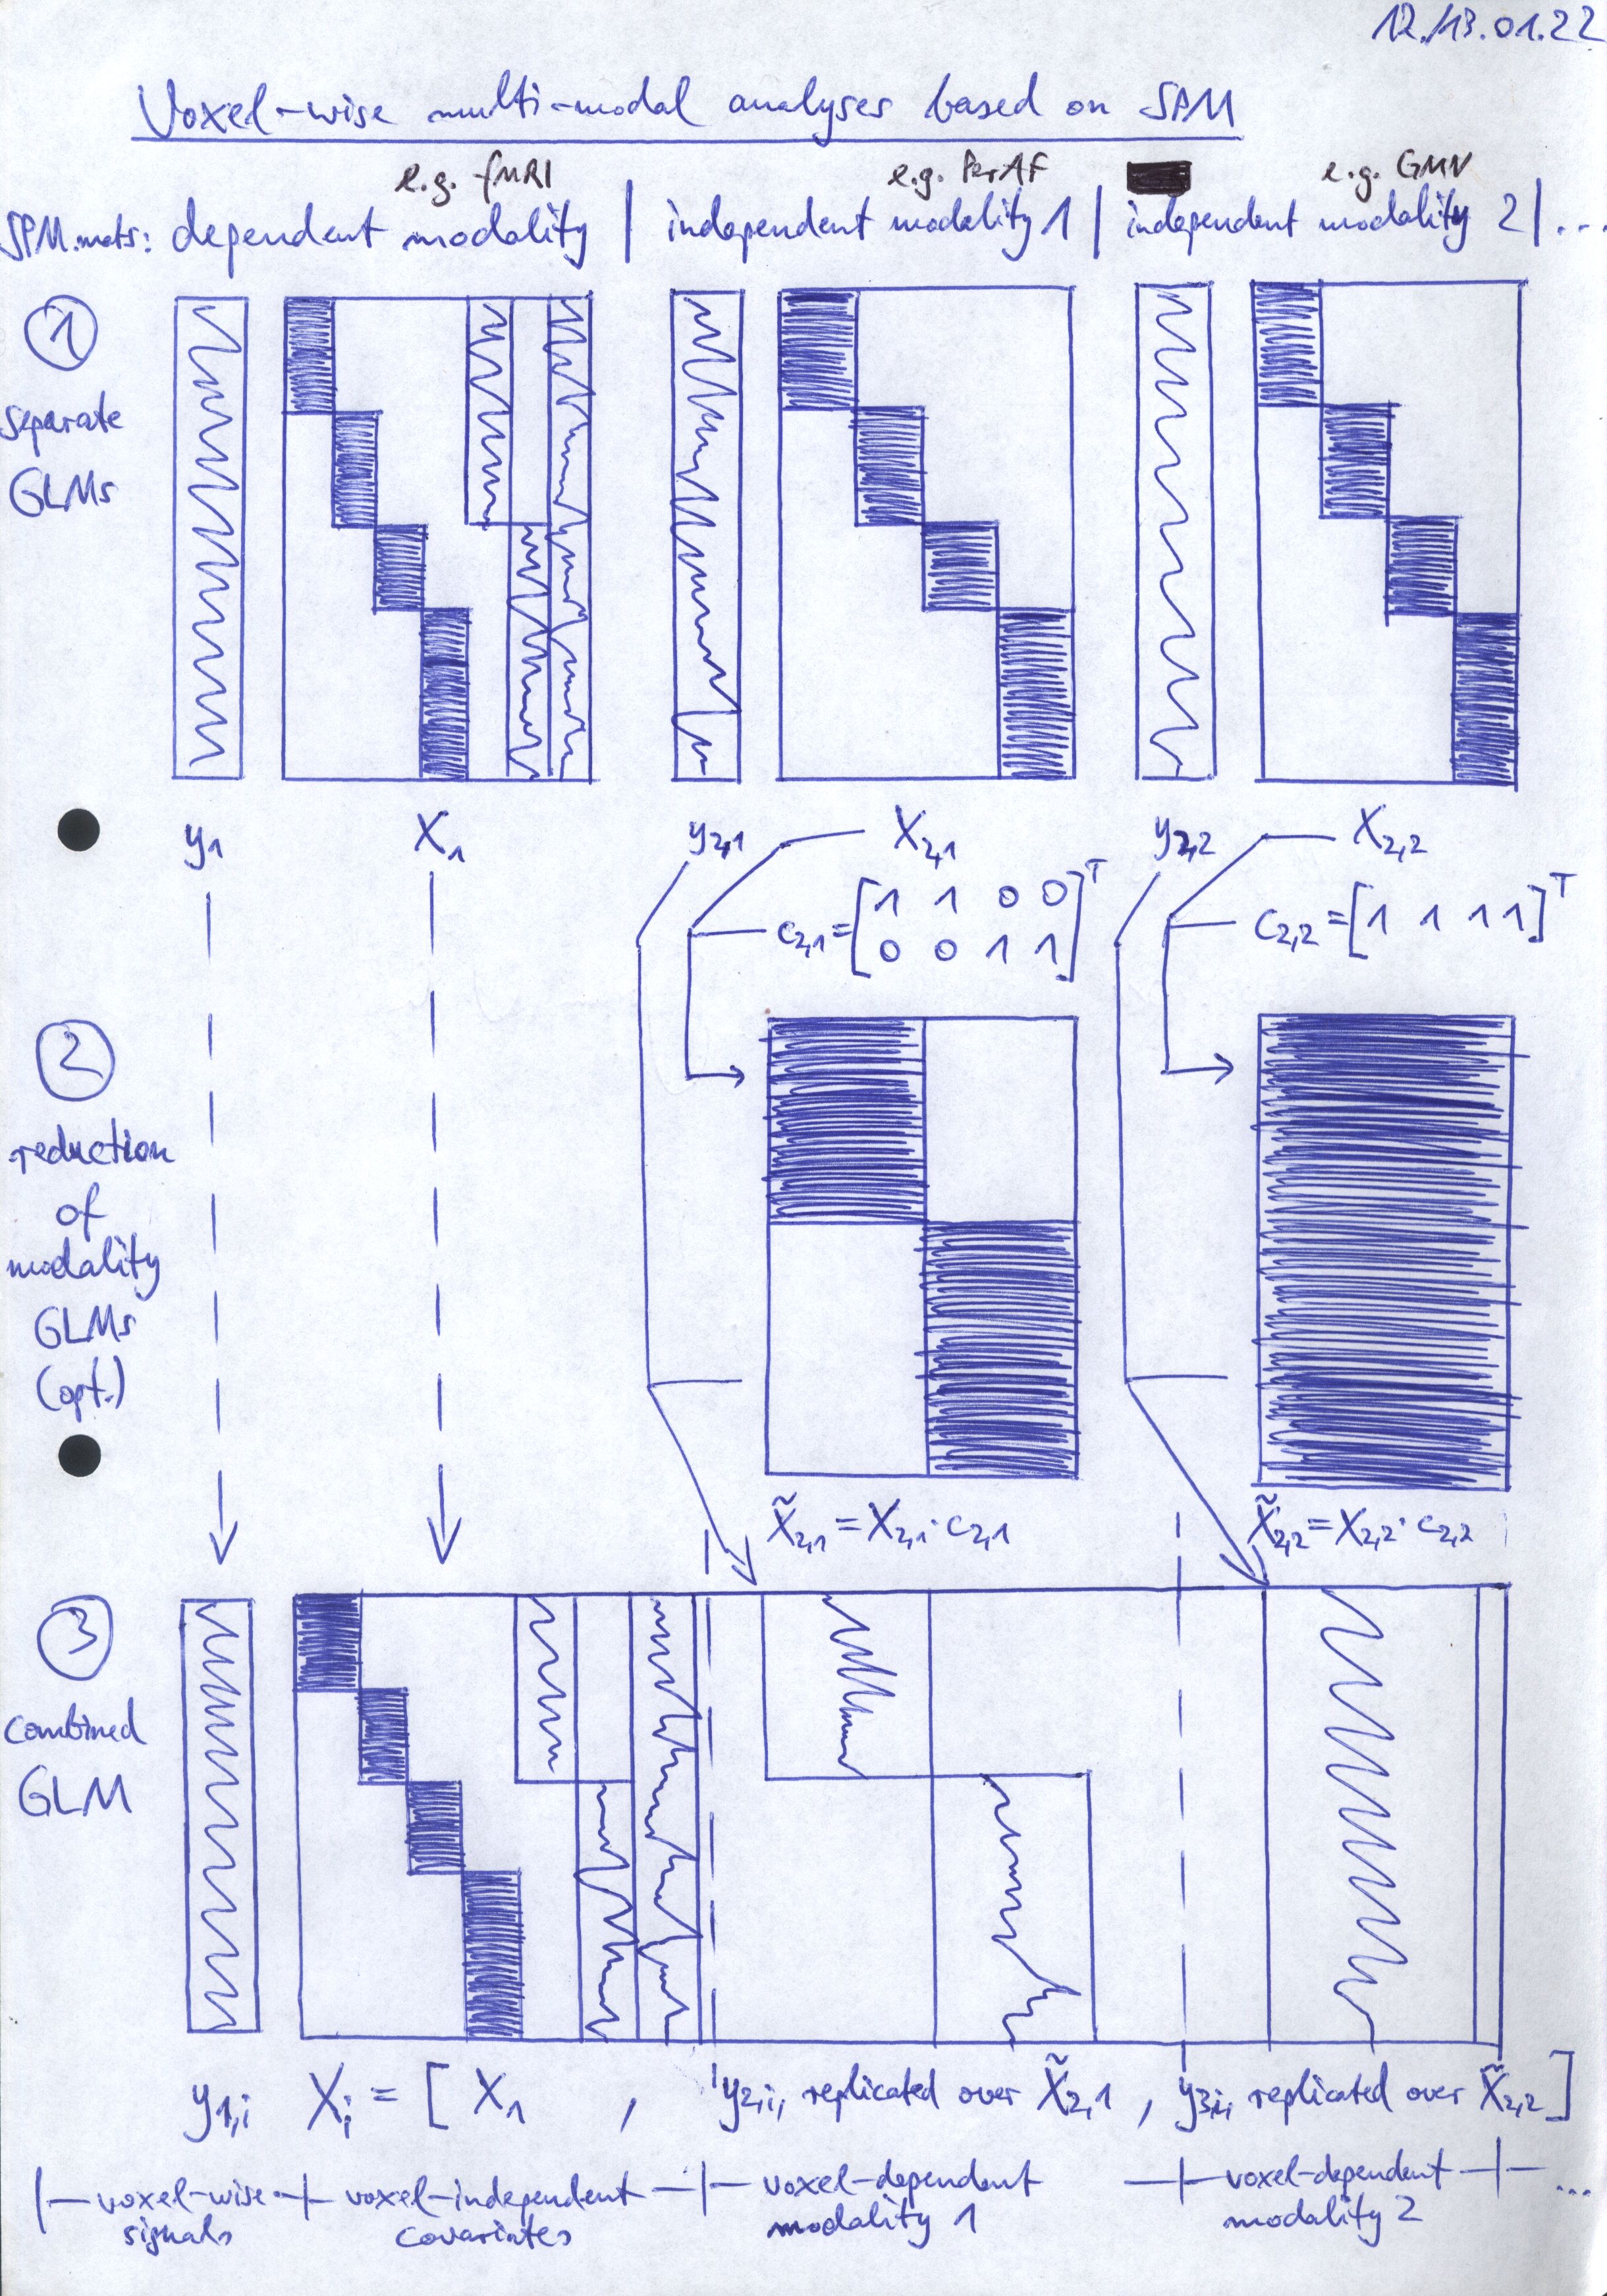 12./13.01.22
Voxel-wise multi-modal analyses based on SPM
e.g. fMRI e.g. PerAF e.g. GMV
SPM.mats: dependent modality | independent modality 1 | independent modality 2 | ...
1
separate
GLMs
y₁ X₁ y₂,₁ X₂,₁ y₂,₂ X₂,₂
c₂,₁ = [1 1 0 0
0 0 1 1]ᵀ
c₂,₂ = [1 1 1 1]ᵀ
2
reduction
of
modality
GLMs
(opt.)
X̃₂,₁ = X₂,₁ · c₂,₁ X̃₂,₂ = X₂,₂ · c₂,₂
3
combined
GLM
y₁,ᵢ Xᵢ = [ X₁ , y₂,ᵢ, replicated over X̃₂,₁ , y₃,ᵢ, replicated over X̃₂,₂ ]
|— voxel-wise —|— voxel-independent —|— voxel-dependent —|— voxel-dependent —|— ...
signals covariates modality 1 modality 2